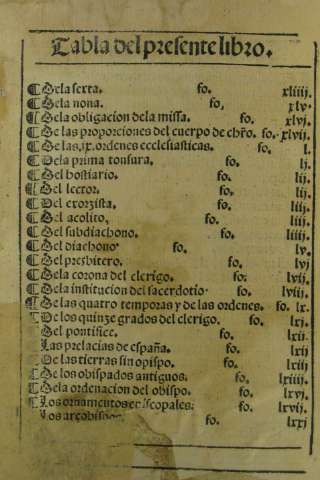 Tabla del presente libro.
¶ De la sexta. fo. xliiij.
¶ De la nona. fo. xlv.
¶ De la obligacion dela missa. fo. xlvj.
¶ De las proporciones del cuerpo de chr̃o. fo. xlvij.
¶ De las .ix. ordenes ecclesiasticas. fo. l.
¶ De la prima tonsura. fo. lj.
¶ Del hostiario. fo. lij.
¶ Del lector. fo. lij.
¶ Del exorzista. fo. liij.
¶ Del acolito. fo. liij.
¶ Del subdiachono. fo. liiij.
¶ Del diachono fo. lv.
¶ Del presbitero. fo. lvj
¶ Dela corona del clerigo. fo. lvij.
¶ Dela institucion del sacerdotio fo. lviij.
¶ De las quatro temporas y de las ordenes. fo. lx.
¶ De los quinze grados del clerigo. fo. lxj.
Del pontifice. fo. lxij
Las prelacias de españa. fo. lxij
De las tierras sin opispo. fo. lxij
¶ De los obispados antiguos. fo. lxiiij.
¶ Dela ordenacion del obispo. fo. lxv.
Los ornamentos episcopales. fo. lxvij.
Los arçobispos. fo. lxxj